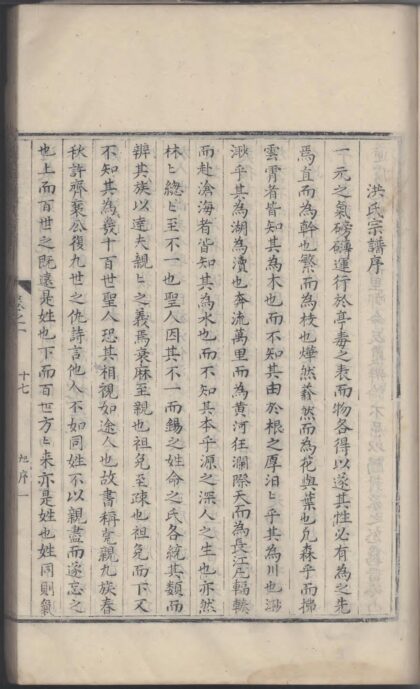 洪氏宗譜序
一元之氣磅礴運行於亭毒之表而物各得以遂其性必有為之先
焉直而為幹也繁而為枝也燁然蓊然而為花與葉也凡森乎而拂
雲霄者皆知其為木也而不知其由於根之厚汨乎其為川也溺
淵乎其為湖為瀆也奔流萬里而為黄河狂瀾際天而為長江凡輻轃
而赴滄海者皆知其為水也而不知其本乎源之深人之生也亦然
林〻總〻至不一也聖人因其不一而錫之姓命之氏各統其類而
辨其族以逹夫親〻之義焉衰麻至親也祖免至疎也祖免而下又
不知其為幾十百世聖人恐其相視如途人也故書稱堯親九族春
秋許齊襄公復九世之仇詩言他人不如同姓不以親盡而遂忘之
也上而百世之既遠是姓也下而百世方〻来亦是姓也姓同則氣
十七
序一